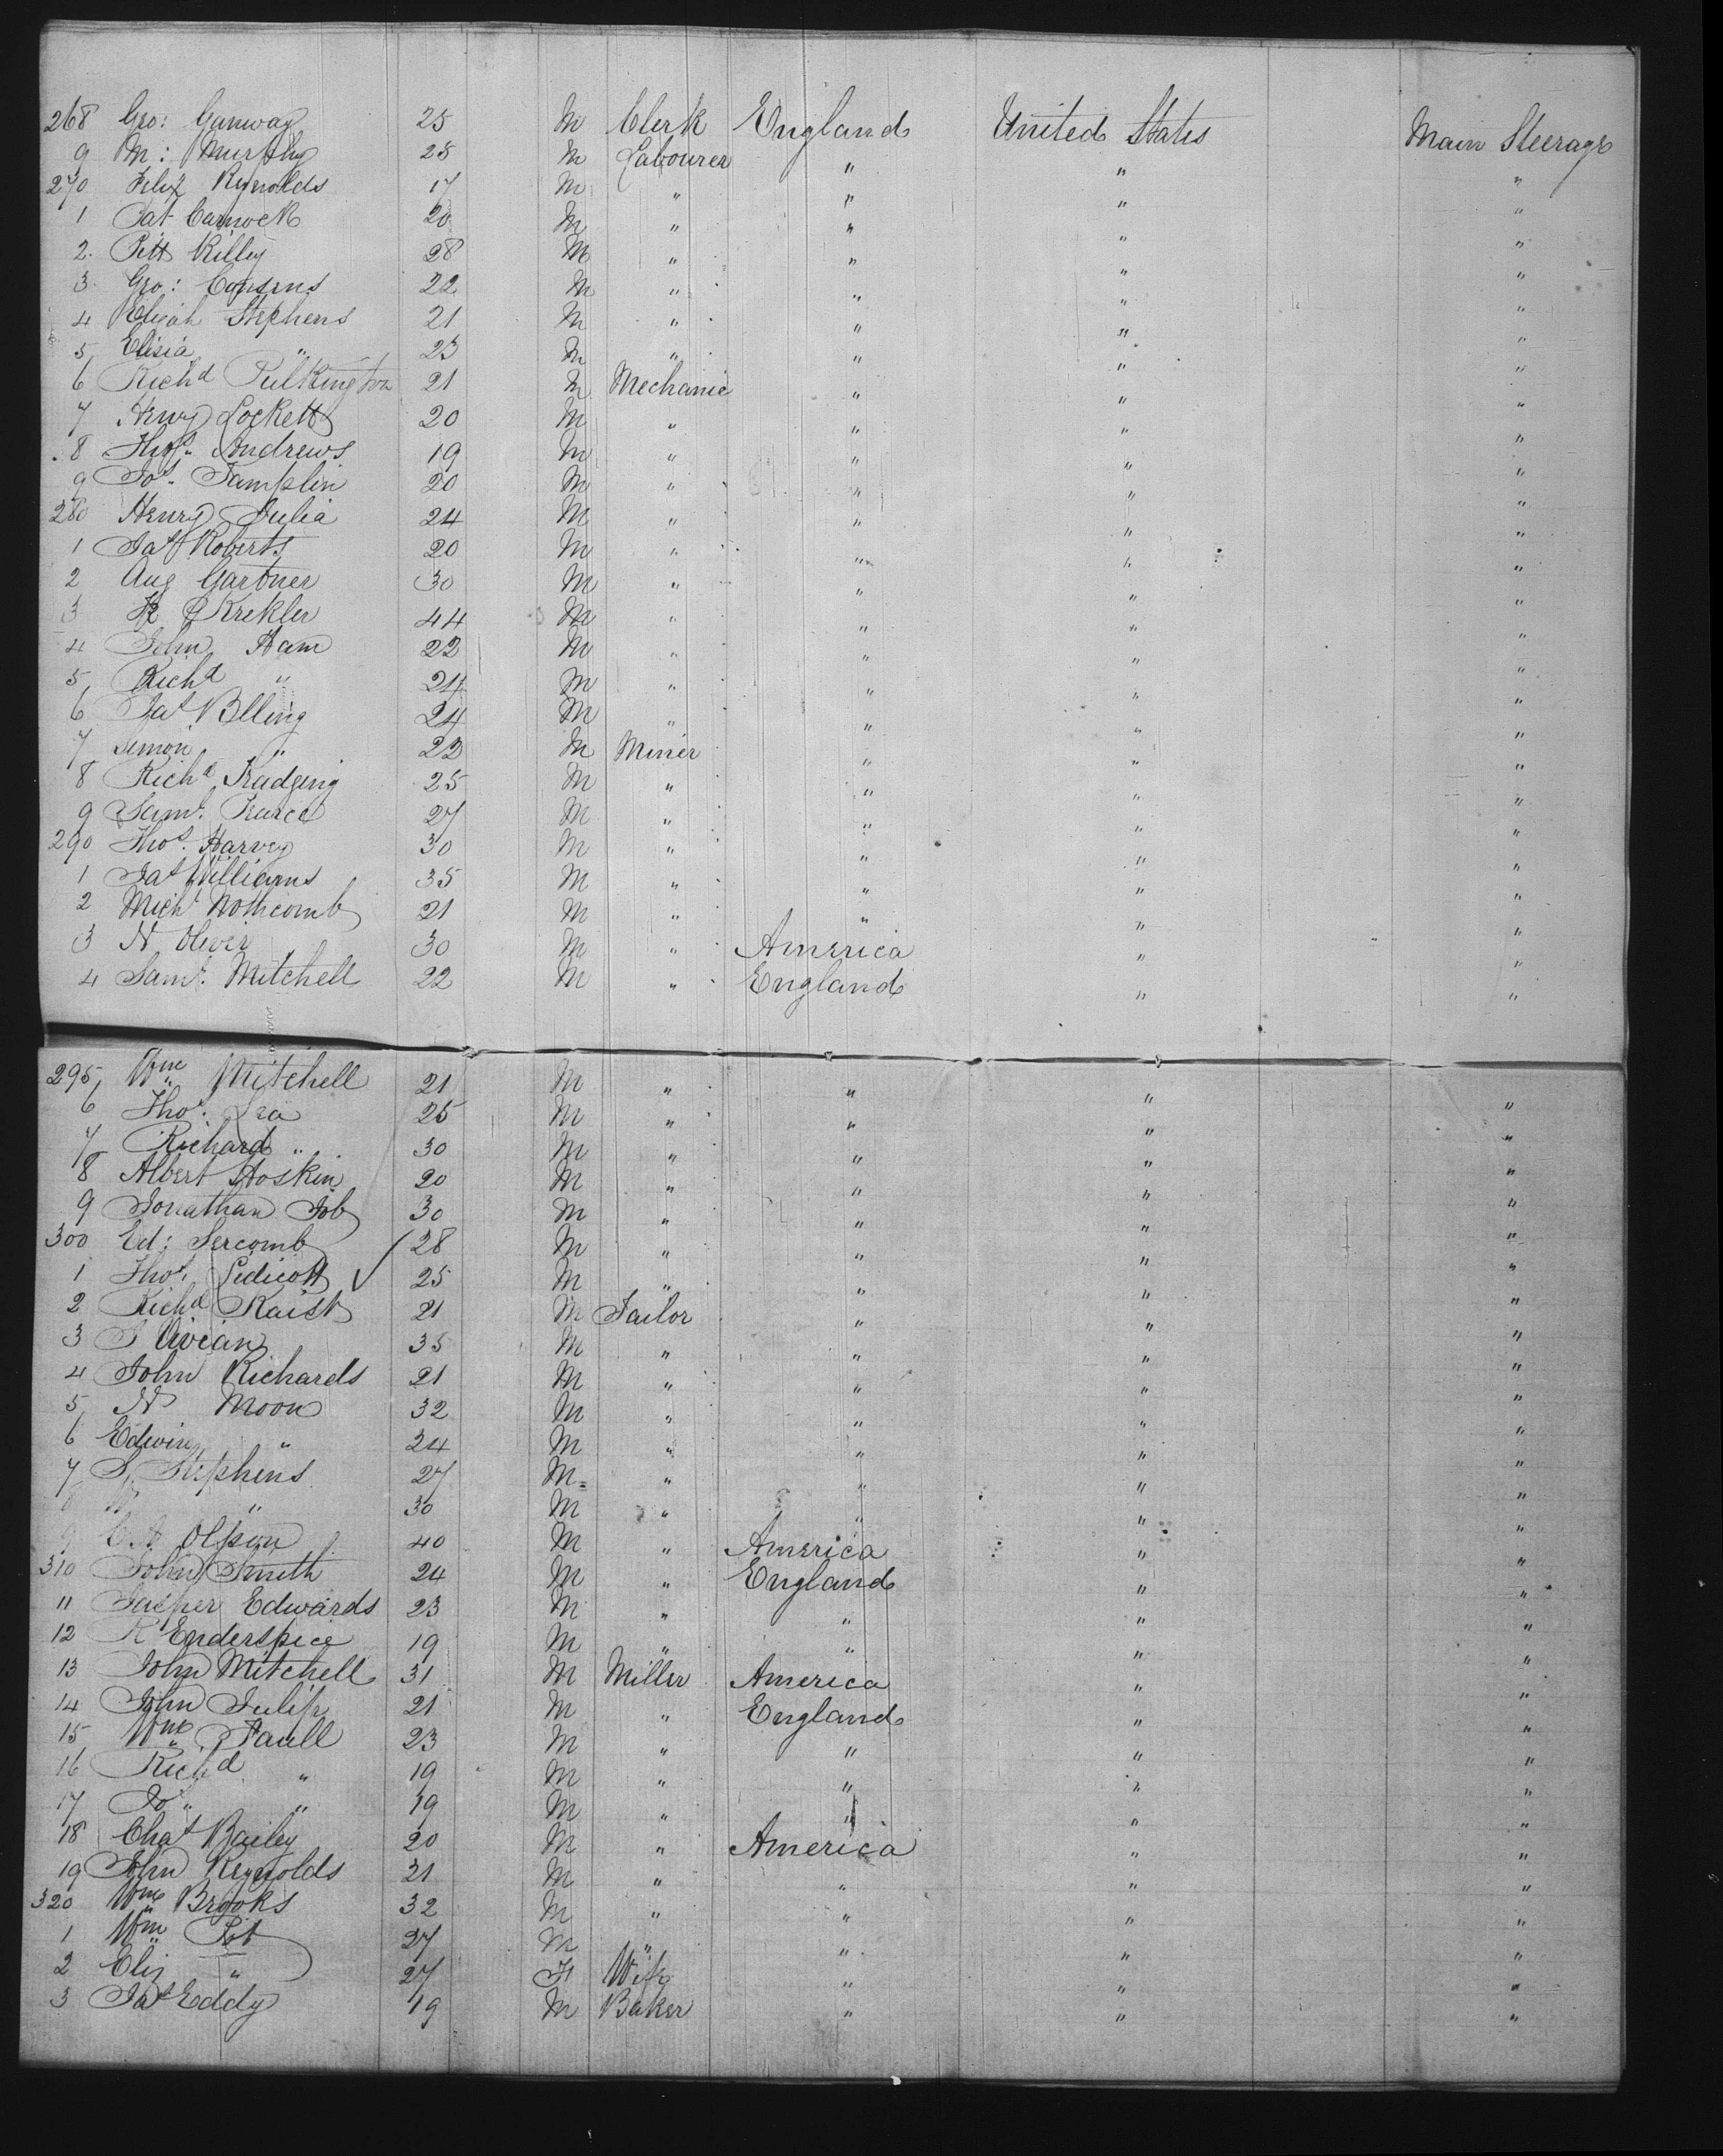 268 Geo: Ganway 25 M Clerk England United States Main Steerage
9 M: Murphy 28 M Labourer " " "
270 Felix Reynolds 17 M " " " "
1 Pat 20 M " " " "
2 Killey 28 M " " " "
3 Geo: Consens 22 M " " " "
4 Elijah Stephens 21 M " " " "
5 Elisia " 23 M " " " "
6 Richd Pulkington 21 M Mechanic " " "
7 Henry Lockett 20 M " " " "
8 Thos. Andrews 19 M " " " "
9 Jos. Tamplin 20 M " " " "
280 Henry Julia 24 M " " " "
1 Jas Roberts 20 M " " " "
2 Aug Gartner 30 M " " " "
3 Krekler 44 M " " " "
4 John Ham 22 M " " " "
5 Richd " 24 M " " " "
6 Jas Blling 24 M " " " "
7 Simon " 22 M Miner " " "
8 Richd 25 M " " " "
9 Saml. Pearce 27 M " " " "
290 Thos. Harvey 30 M " " " "
1 Jas Williams 35 M " " " "
2 Michl Nothcomb 21 M " " " "
3 N Oliver 30 M " America " "
4 Saml. Mitchell 22 M " England " "
295 Wm Mitchell 21 M " " " "
6 Thos. Lea 25 M " " " "
7 Richard " 30 M " " " "
8 Albert Hoskin 20 M " " " "
9 Jonathan Job 30 M " " " "
300 Ed: Sercomb 28 M " " " "
1 Thos. Ledicott 25 M " " " "
2 Richd Kaist 21 M Tailor " " "
3 S Vivian 35 M " " " "
4 John Richards 21 M " " " "
5 N Moon 32 M " " " "
6 Edwin " 24 M " " " "
7 S. Stephens 27 M " " " "
8 W " 30 M " " " "
9 C. A. Olpson 40 M " America " "
310 John Smith 24 M " England " "
11 Jasper Edwards 23 M " " " "
12 R Enderspice 19 M " " " "
13 John Mitchell 31 M Miller America " "
14 John Julip 21 M " England " "
15 Wm Faull 23 M " " " "
16 Richd " 19 M " " " "
17 Jos " 19 M " " " "
18 Chas Bailey 20 M " America " "
19 John Reynolds 21 M " " " "
320 Wm Brooks 32 M " " " "
1 Wm Job 27 M " " " "
2 Eliz " 27 F Wife " " "
3 Jas Eddy 19 M Baker " " "